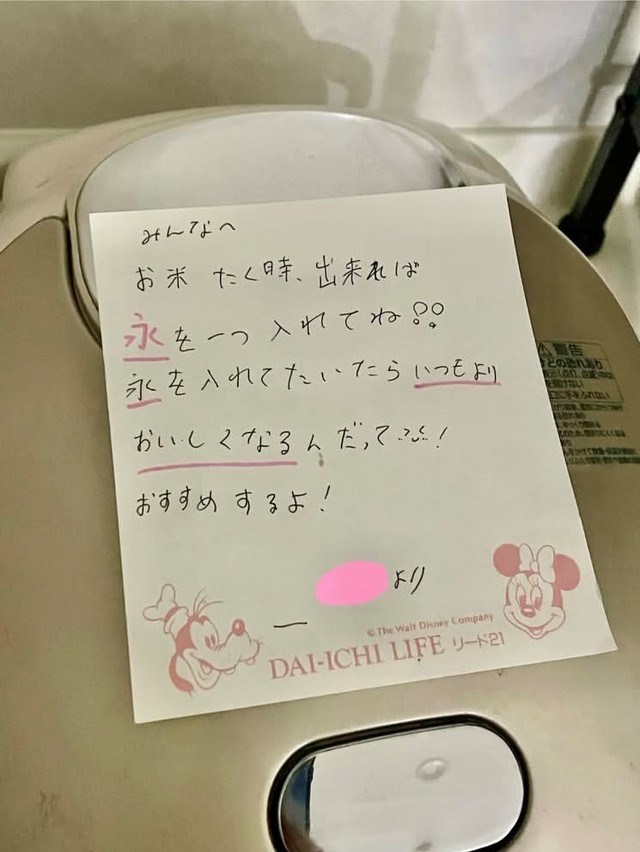 みんなへ
お米 たく時、出来れば
永を一つ入れてね!!
永を入れてたいたら いつもより
おいしくなるんだって!
おすすめするよ!
より
© The Walt Disney Company
DAI-ICHI LIFE リード21
警告